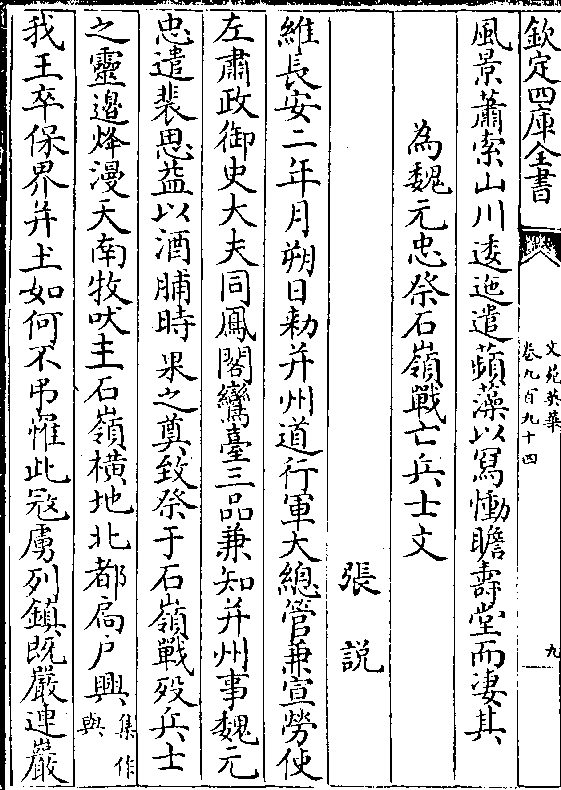 欽定四庫全書
文苑英華
卷九百九十四
九
風景蕭索山川逶迤遣蘋藻以寫慟瞻壽堂而淒其
為魏元忠祭石嶺戰亡兵士文
張說
維長安二年月朔日勑并州道行軍大總管兼宣勞使
左肅政御史大夫同鳳閣鸞臺三品兼知并州事魏元
忠遣裴思益以酒脯時果之奠致祭于石嶺戰歿兵士
之靈邉烽漫天南牧吠主石嶺橫地北都扃户興集作與
我王卒保界并土如何不弔罹此寇虜列鎮既嚴連巖